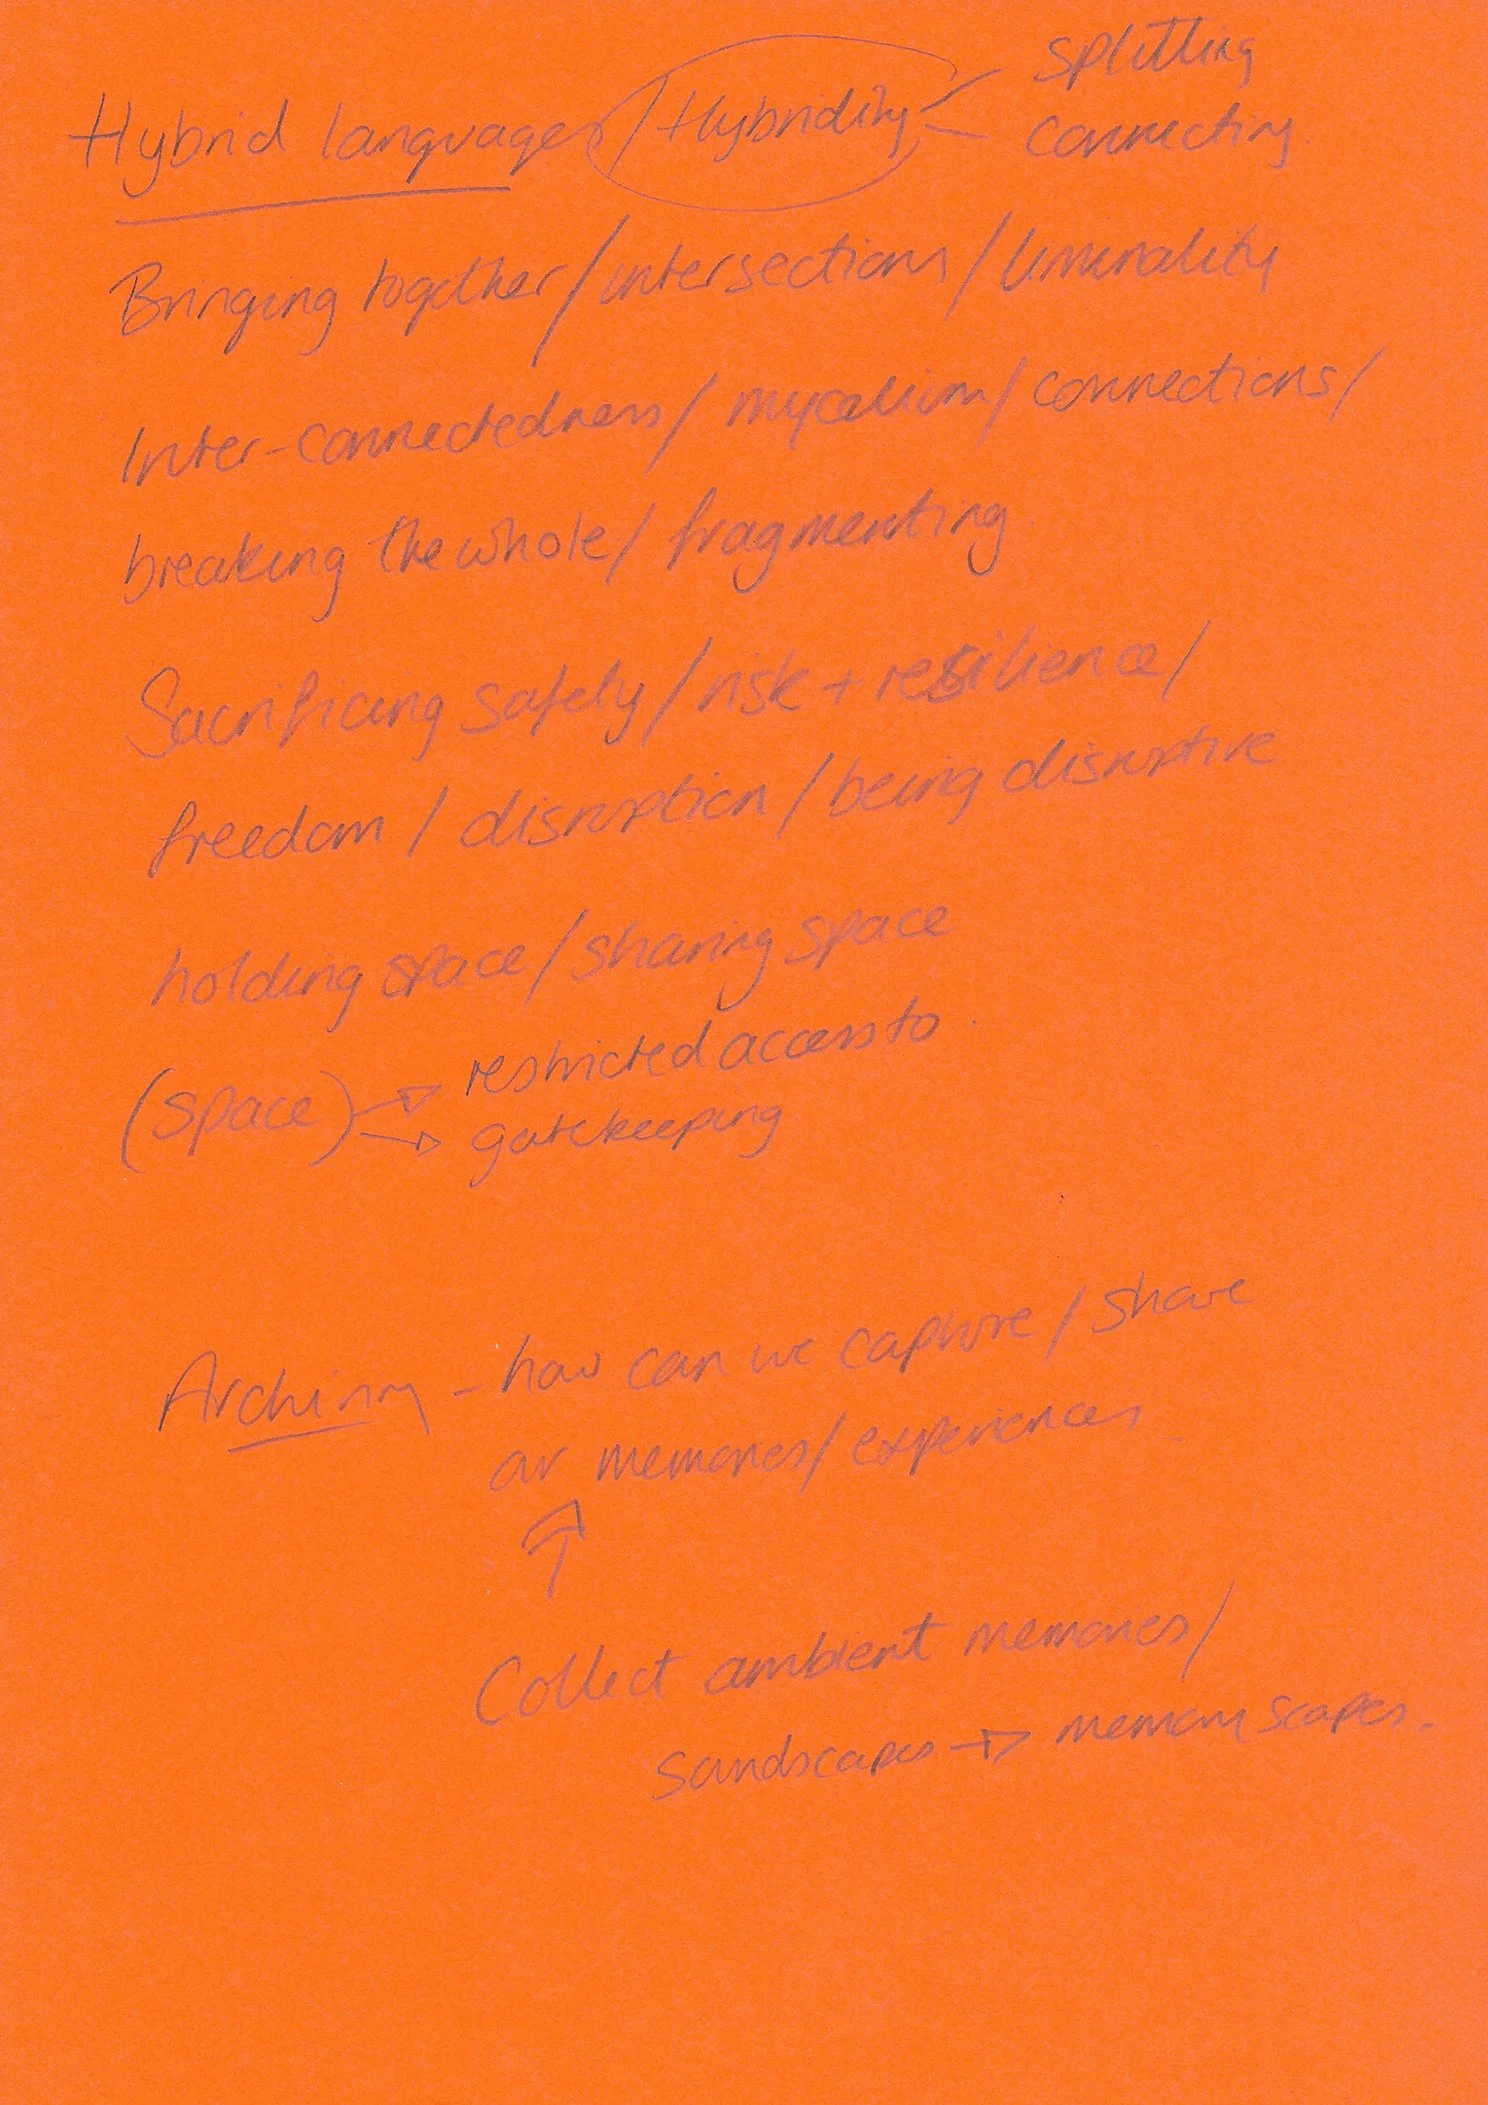 Hybrid languages / Hybridity
splitting
connecting.
Bringing together / intersections / liminality
Inter-connectedness / mycelium / connections /
breaking the whole / fragmenting
Sacrificing safety / risk + resilience /
freedom / disruption / being disruptive
holding space / sharing space
(space) → restricted access to
→ gatekeeping
Archiving - how can we capture / share
our memories / experiences
Collect ambient memories /
Soundscapes → memory scapes.